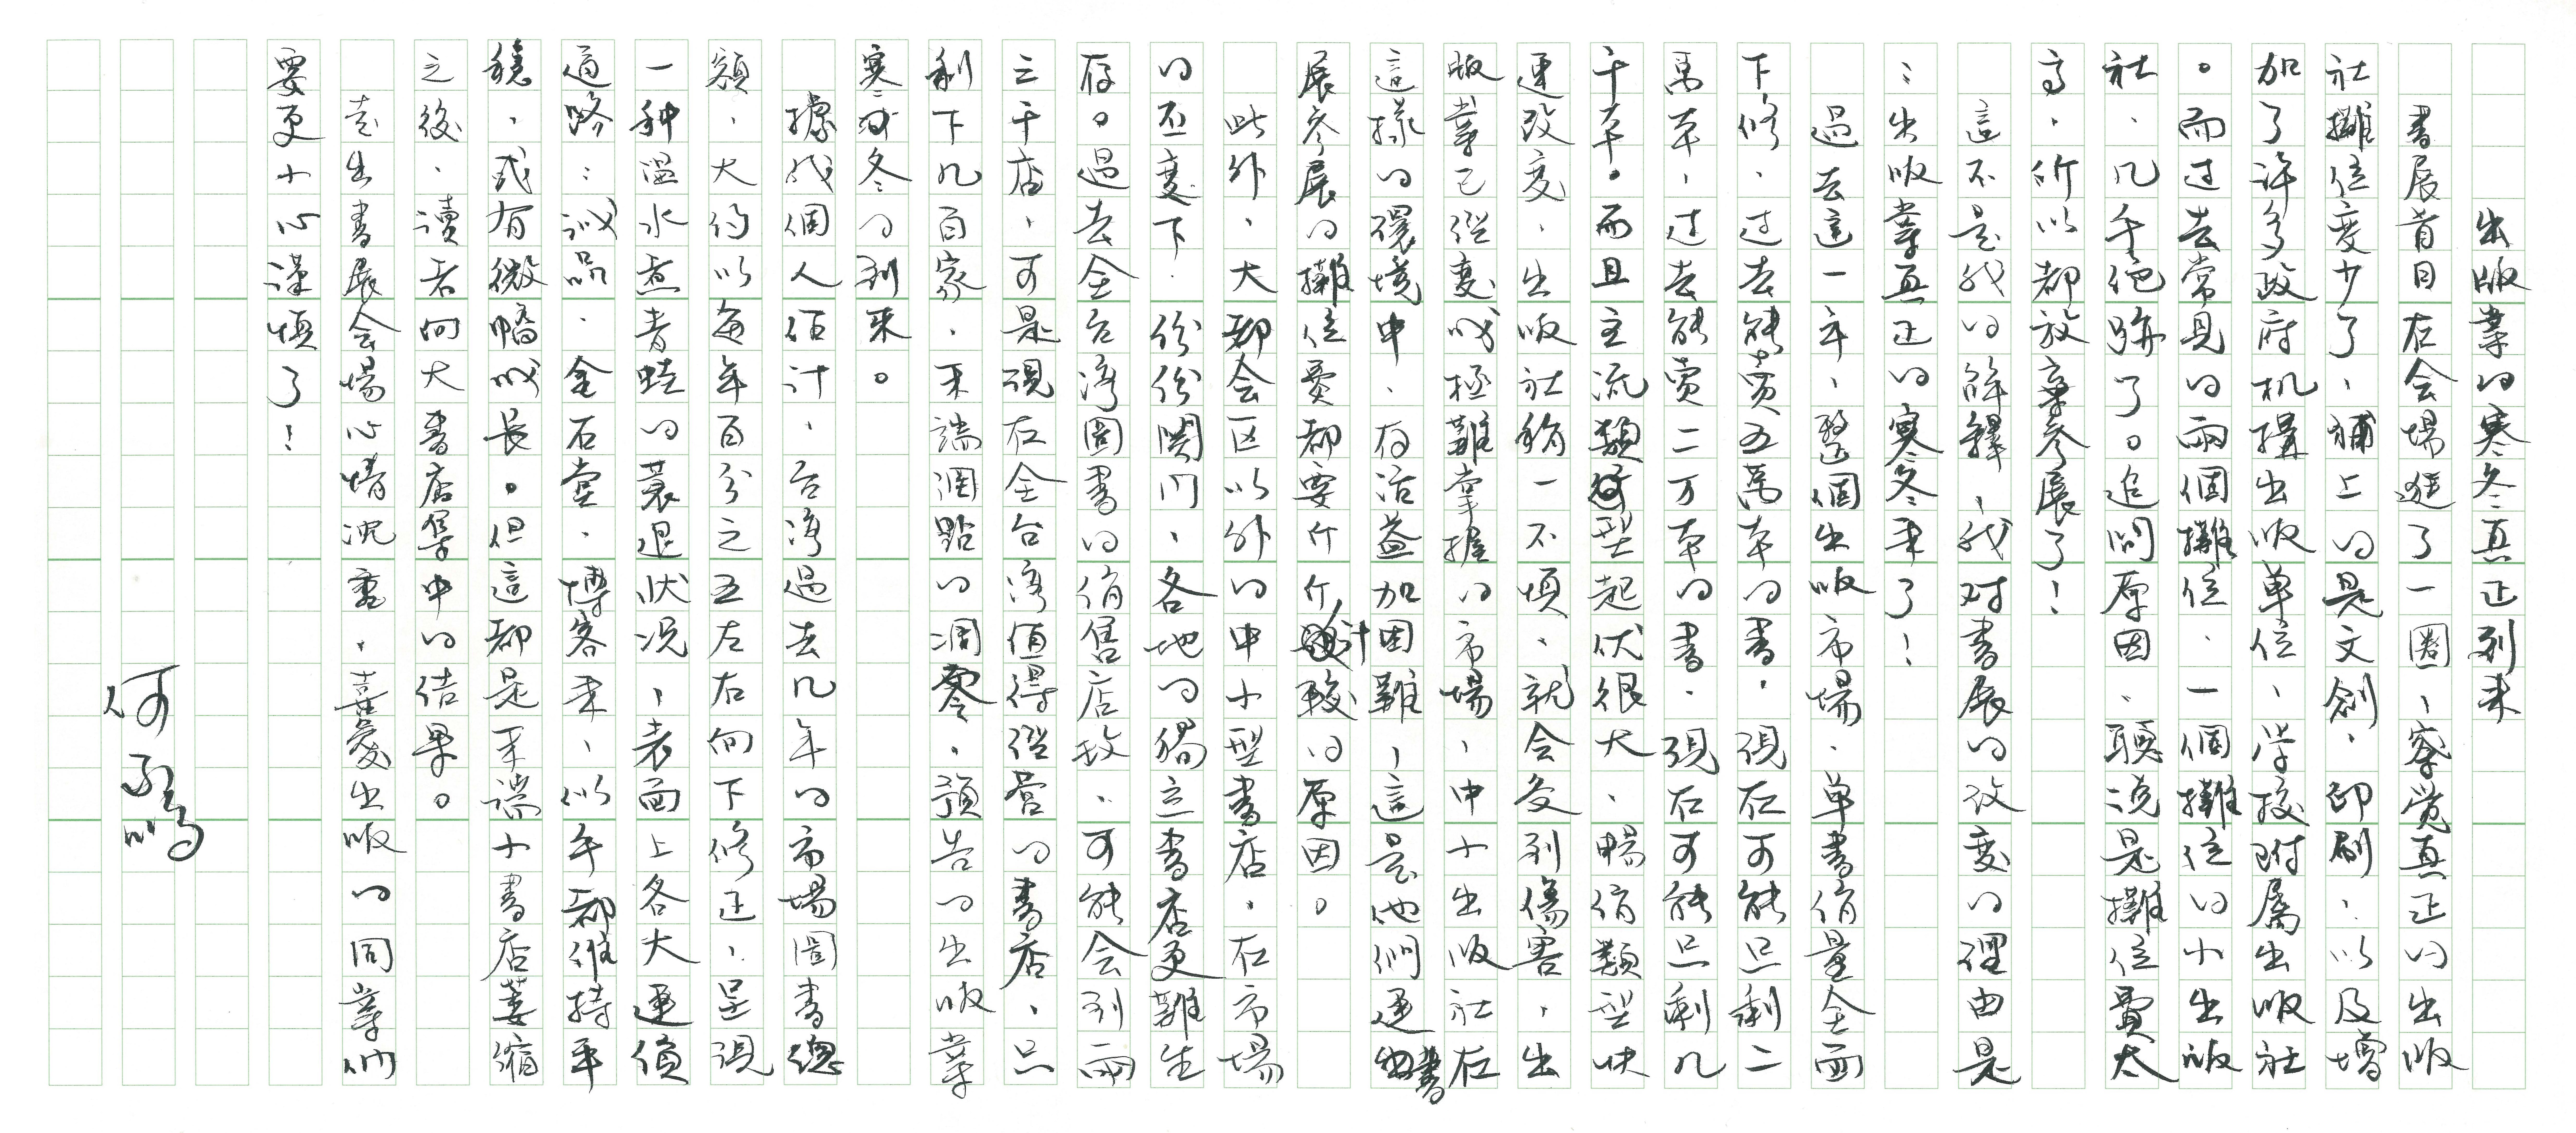 出版業的寒冬真正到来
書展首日在会場逛了一圈，察觉真正的出版
社攤位变少了，補上的是文創、印刷…以及增
加了許多政府机構出版单位、学校附属出版社
。而过去常見的兩個攤位、一個攤位的小出版
社，几乎絕跡了。追問原因，聽說是攤位費太
高，所以都放棄参展了！
這不是我的解釋，我对書展的改变的理由是
：出版業真正的寒冬来了！
過去這一年，整個出版市場，单書銷量全面
下修，过去能賣五萬本的書，現在可能只剩二
萬本，过去能賣二万本的書，現在可能只剩几
千本。而且主流類型起伏很大，暢銷類型快
速改变，出版社稍一不慎，就会受到傷害，出
版業已經变成極難掌握的市場，中小出版社在
這樣的環境中，存活益加困難，這是他們連書
展参展的攤位費都要斤斤計較的原因。
此外，大都会区以外的中小型書店，在市場
的丕变下，份份関门，各地的獨立書店更難生
存。過去全台湾圖書的銷售店数，可能会到兩
三千店，可是現在全台湾值得經营的書店，只
剩下几百家，末端凋點的凋零，預告的出版業
寒冬的到来。
據我個人估计，台湾過去几年的市場圖書總
額，大約以每年百分之五左右向下修正，呈現
一种温水煮青蛙的衰退状况，表面上各大連鎖
通路：誠品、金石堂、博客来，似乎都維持平
穩，或有微幅成長。但這都是末端小書店萎縮
之後，讀者向大書店集中的结果。
走出書展会場心情沉重，喜愛出版的同業们
要更小心谨慎了！
何飛鵬